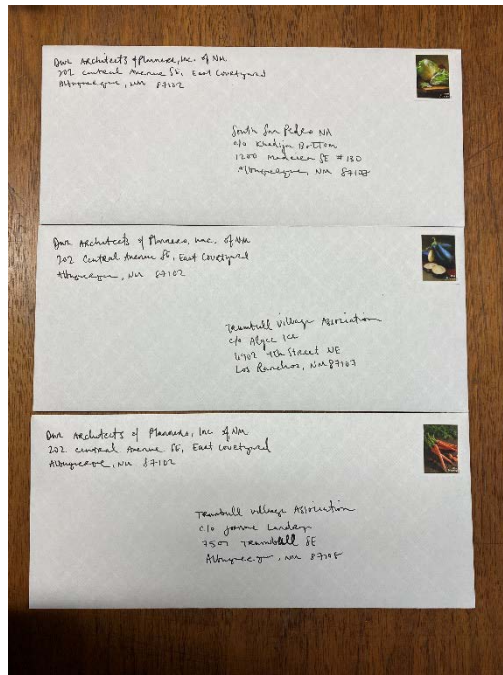 DWR Architects & Planners, Inc. of NM
202 Central Avenue SE, East Courtyard
Albuquerque, NM 87102
South San Pedro NA
c/o Khadijah Bottom
1200 Madeira SE #130
Albuquerque, NM 87108
DWR Architects & Planners, Inc. of NM
202 Central Avenue SE, East Courtyard
Albuquerque, NM 87102
Trumbull Village Association
c/o Alyce Ice
6902 4th Street NE
Los Ranchos, NM 87107
DWR Architects & Planners, Inc of NM
202 Central Avenue SE, East Courtyard
Albuquerque, NM 87102
Trumbull Village Association
c/o Joanne Landry
7501 Trumbull SE
Albuquerque, NM 87108